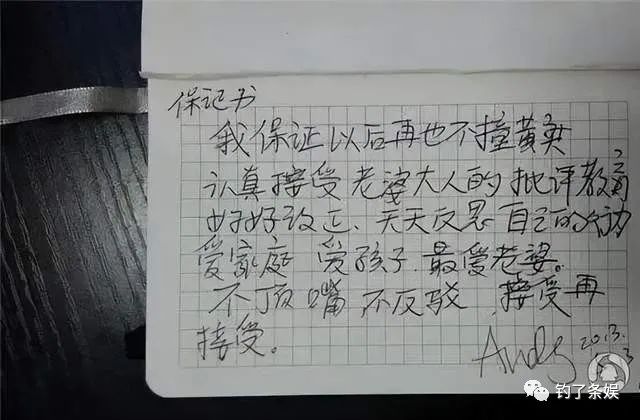 保记书
我保证以后再也不撞黄奕
认真接受老婆大人的批评教育
好好改正、天天反思自己的行动
爱家庭 爱孩子.最爱老婆。
不顶嘴,不反驳,接受再
接受。
Andy 2013.
3
钓了条娱